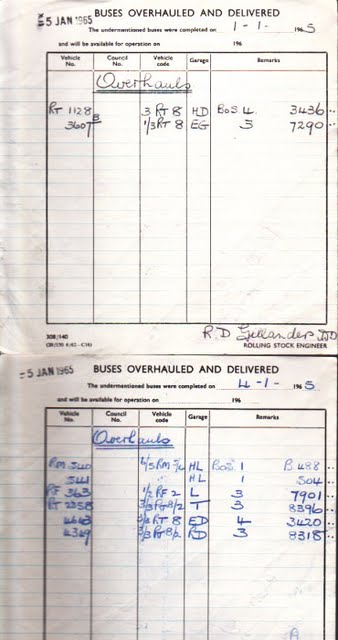 5 JAN 1965
BUSES OVERHAULED AND DELIVERED
The undermentioned buses were completed on 1-1- 1965
and will be available for operation on 196
Vehicle No. Council No. Vehicle code Garage Remarks
Overhauls
RT 1128 3 RT 8 HD BOS 4 3436
3607 1/3 RT 8 EG 3 7290
308/140
R.D Gellanders
ROLLING STOCK ENGINEER
5 JAN 1965
BUSES OVERHAULED AND DELIVERED
The undermentioned buses were completed on 4-1- 1965
and will be available for operation on 196
Vehicle No. Council No. Vehicle code Garage Remarks
Overhauls
RM 540 HL BOS 1 B 488
541 " HL 1 504
RF 363 1/2 RF 2 L 3 7901
RT 2358 T 3 8396
4643 RT 8 ED 4 3420
4349 RD 3 8318
A